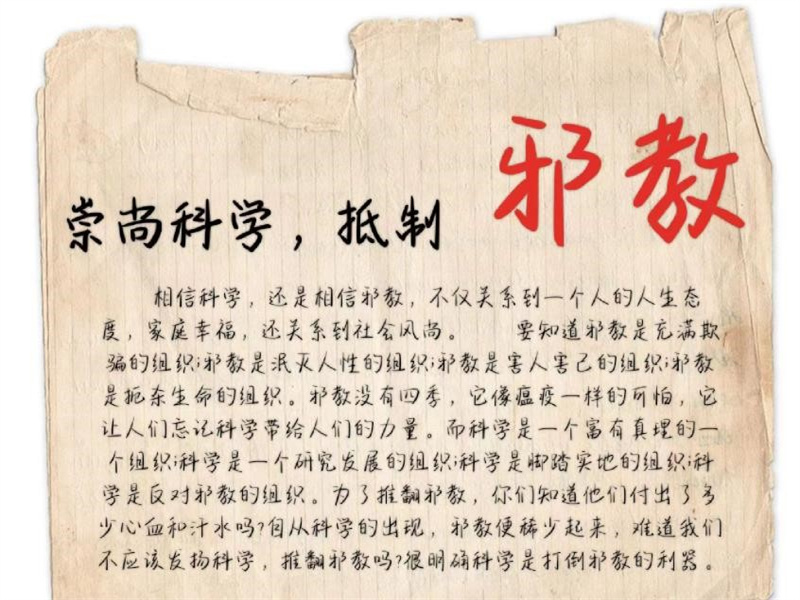 崇尚科学，抵制 邪教
相信科学，还是相信邪教，不仅关系到一个人的人生态
度，家庭幸福，还关系到社会风尚。 要知道邪教是充满欺
骗的组织;邪教是泯灭人性的组织;邪教是害人害己的组织;邪教
是扼杀生命的组织。邪教没有四季，它像瘟疫一样的可怕，它
让人们忘记科学带给人们的力量。而科学是一个富有真理的一
个组织;科学是一个研究发展的组织;科学是脚踏实地的组织;科
学是反对邪教的组织。为了推翻邪教，你们知道他们付出了多
少心血和汁水吗?自从科学的出现，邪教便稀少起来，难道我们
不应该发扬科学，推翻邪教吗?很明确科学是打倒邪教的利器。